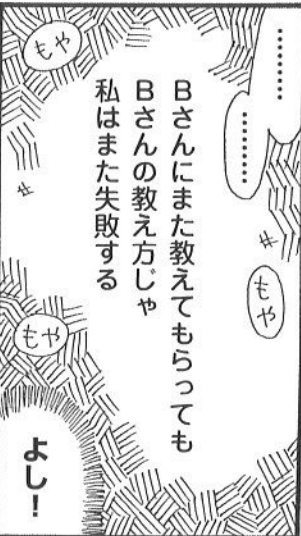 ………
………
もや
Bさんにまた教えてもらっても
Bさんの教え方じゃ
私はまた失敗する
もや
もや
よし!